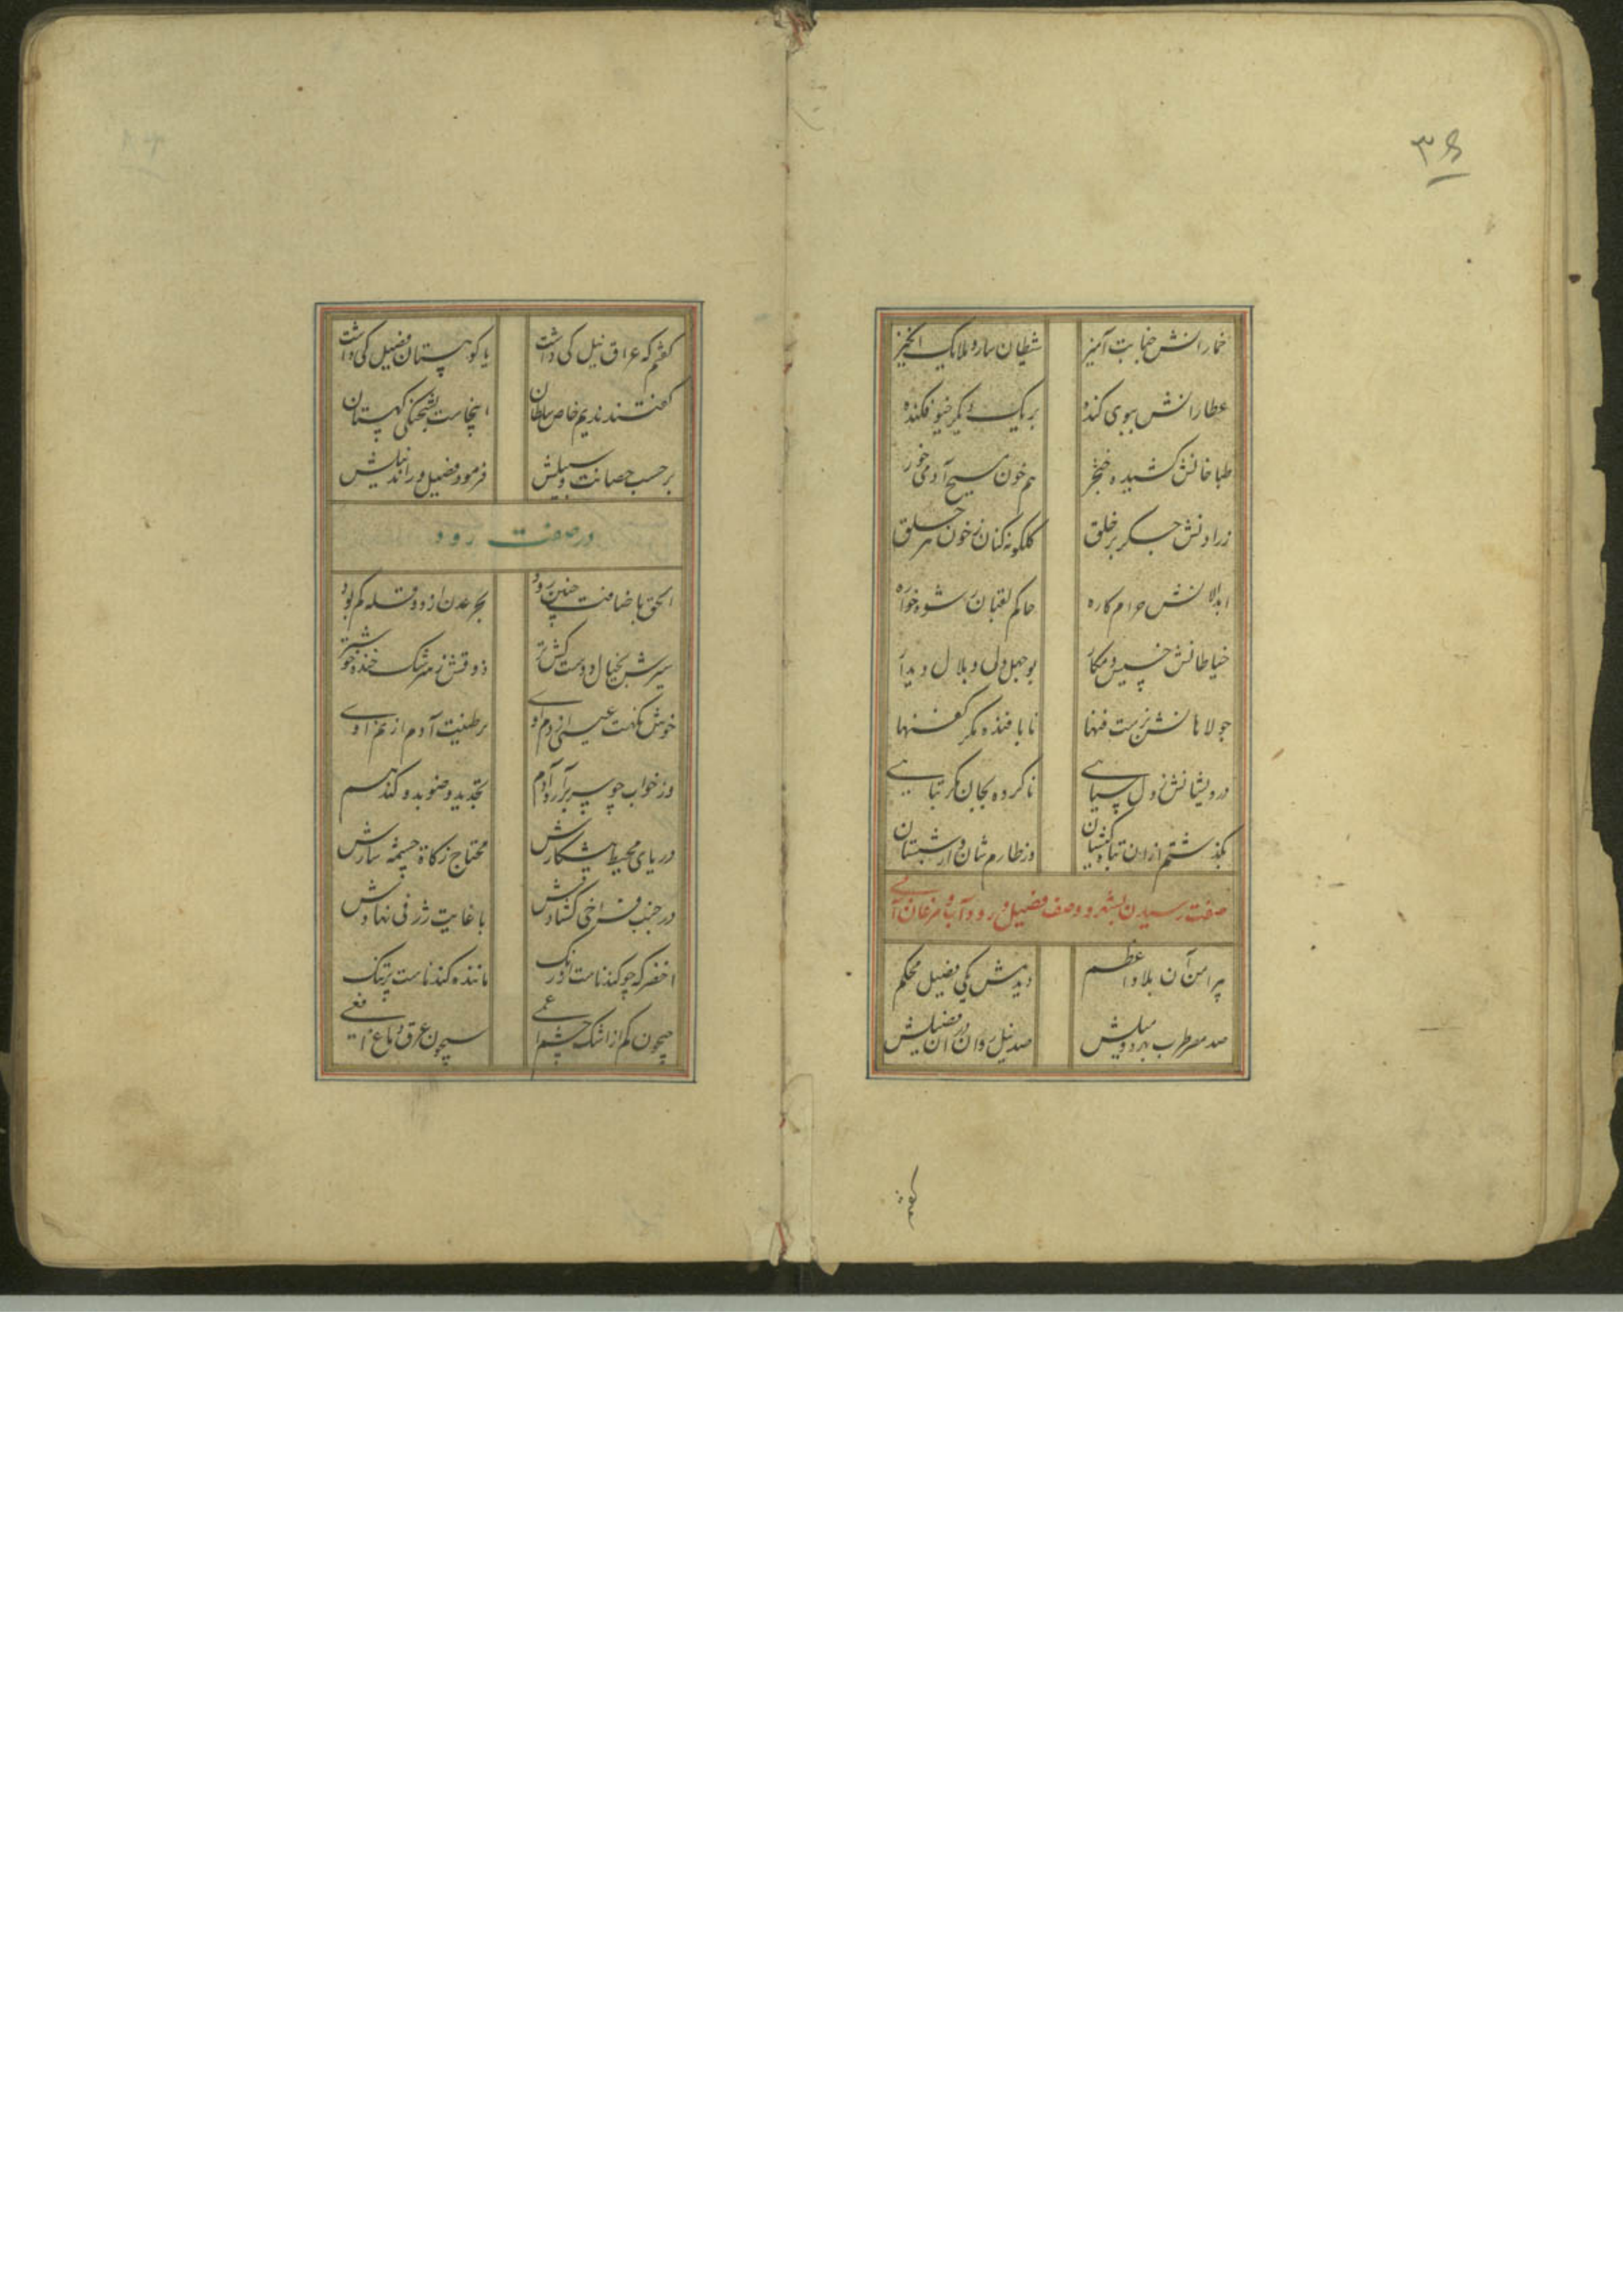 ۳۶
خمارانش جنابت آمیز شطان سار و ملایک انگیز
عطارانش ببوی کنده بر یک دیگر خیو فکنده
طباخانش کشیده خنجر هم خون مسیح آدمی خور
زرادنش جسکر بر خلق کلکونه کنان ز خون هر حلق
ابدالانش حرام کاره حاکم لقبان رشوه خواره
خیاطانش خسیس و مکار بوجهل دل و بلال دیدار
جولاهانش نا بافنده مکر کفنها
درویشانش ز دل سیاهی ناکرده بجان مکر تباهی
بگذشتم از ان تباه کیشان وز طارم شان و از شبستان
صفت رسیدن بشهر و وصف فصیل و رود آب و مرغان آبی
پیرامن آن بلاد اعظم دیدمش یکی فصیل محکم
صد مصر طرب بهر دو میلش صد نیل روان در ان فصیلش
کفتم
کفتم که عراق نیل کی داشت یا کوهستان فصیل کی داشت
کفتند ندیم خاص سلطان اینجاست بشحنکی کهستان
بر حسب حصانت و سبیلش فرمود فصیل و راند نیلش
در صفت رود
الحق باضافت چنین رود بحر عدن از دو قله کم بود
سیرش بخیال دوست کش تر ذوقش ز سرشک خنده خوشتر
خوش نکهت عیسی از دم اوی برطینت آدم از نم اوی
وز خواب چو سر برآرد آدم تجدید وضو بدو کند هم
دریای محیط پیشکارش محتاج زکاة چشمه سارش
در جنب فراخی کشادش با غایت ژرفی نهادش
اخضر که چو کندناست در رنک ماننده کندناست پر تنک
جیحون کم از اشک چشم اعمی سیحون عرق دماغ افعی